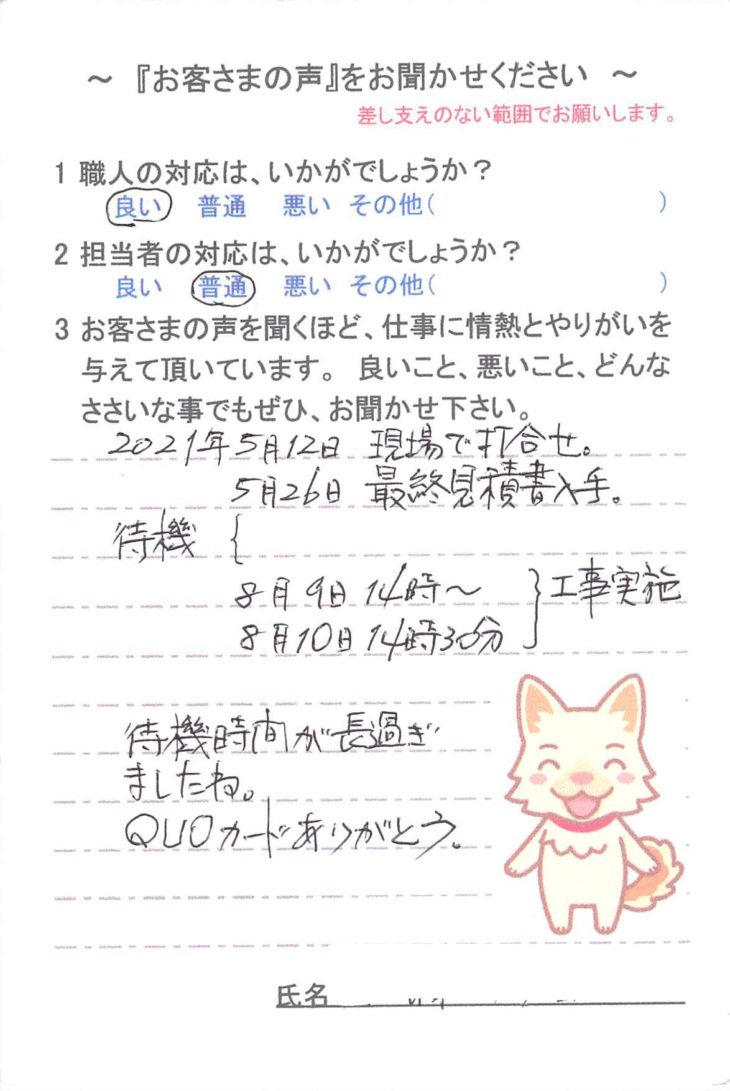 ～ 『お客さまの声』をお聞かせください ～
差し支えのない範囲でお願いします。
1 職人の対応は、いかがでしょうか？
良い 普通 悪い その他( )
2 担当者の対応は、いかがでしょうか？
良い 普通 悪い その他( )
3 お客さまの声を聞くほど、仕事に情熱とやりがいを
与えて頂いています。 良いこと、悪いこと、どんな
ささいな事でもぜひ、お聞かせ下さい。
2021年5月12日 現場で打合せ。
5月26日 最終見積書入手。
待機 {
8月9日 14時～
8月10日 14時30分 } 工事実施
待機時間が長過ぎ
ましたね。
QUOカードありがとう。
氏名